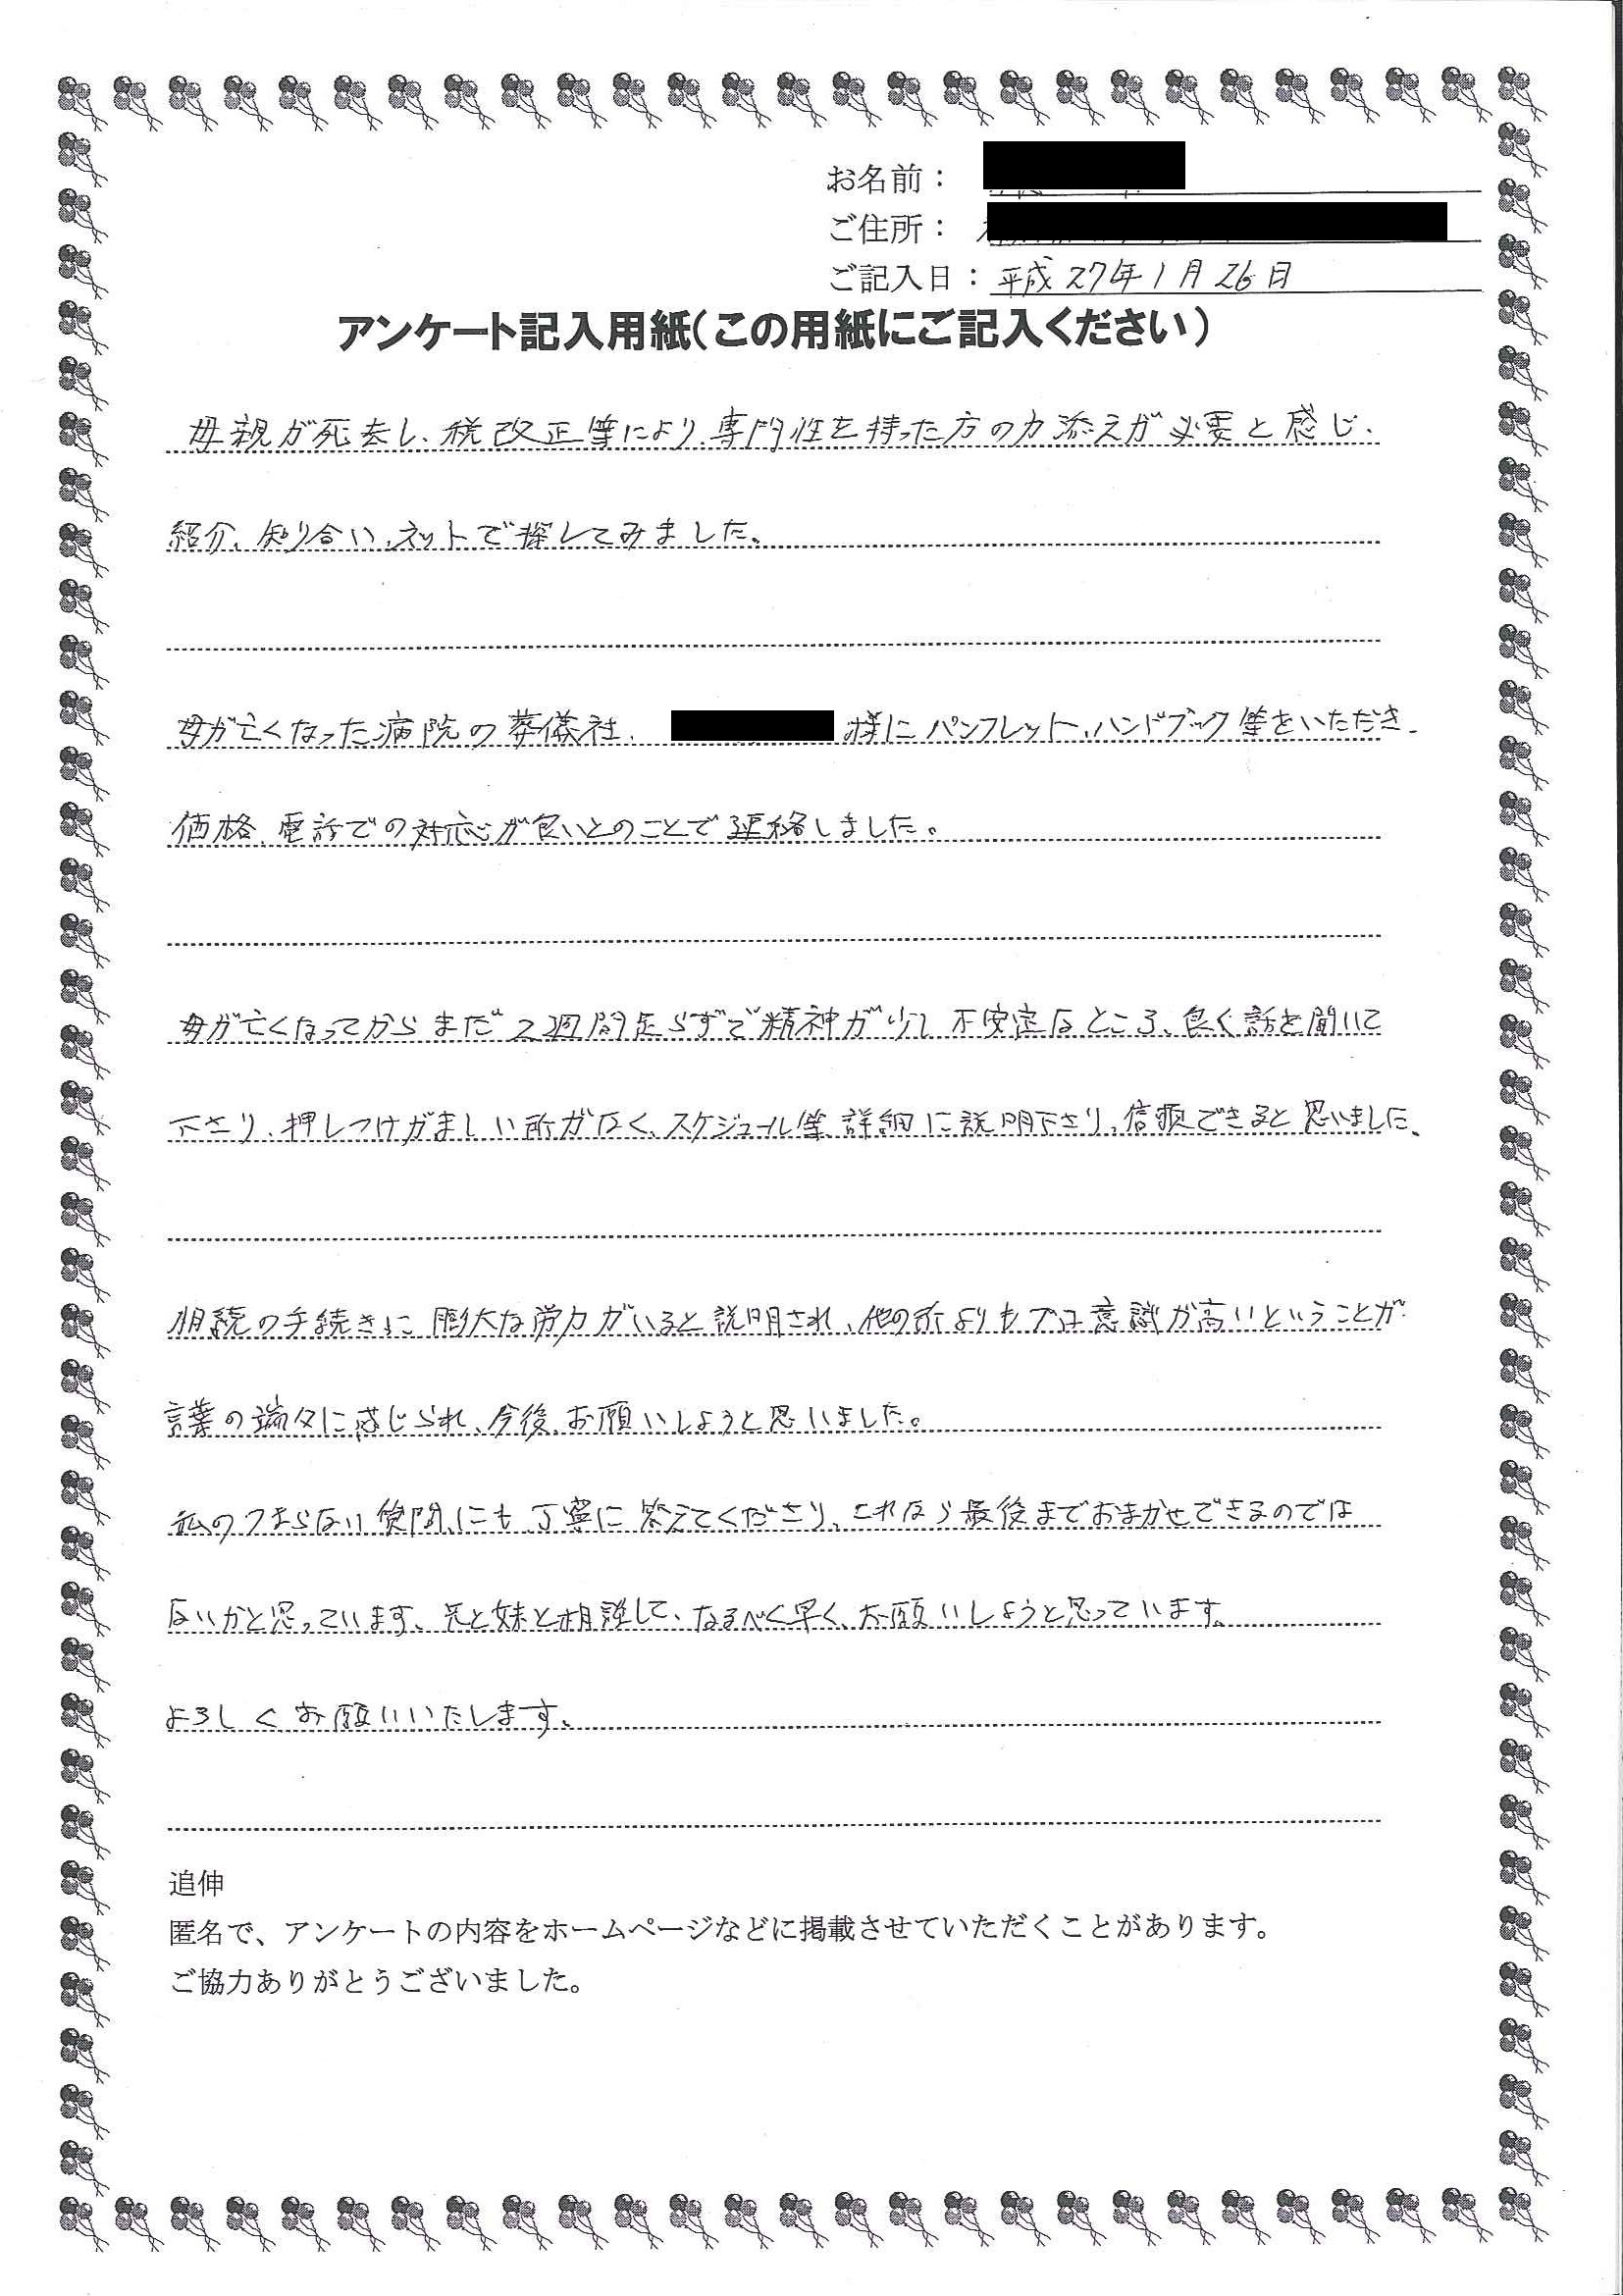 お名前：
ご住所：
ご記入日：平成27年1月26日
アンケート記入用紙（この用紙にご記入ください）
母親が死去し、税改正等により、専門性を持った方の力添えが必要と感じ、
紹介、知り合い、ネットで探してみました。
母が亡くなった病院の葬儀社、様にパンフレット、ハンドブック等をいただき、
価格、電話での対応が良いとのことで連絡しました。
母が亡くなってからまだ2週間足らずで精神が少し不安定なところ、良く話を聞いて
下さり、押しつけがましい所がなく、スケジュール等、詳細に説明下さり、信頼できると思いました。
相続の手続きに膨大な労力がいると説明され、他の所よりもプロ意識が高いということが
言葉の端々に感じられ、今後、お願いしようと思いました。
私のつまらない質問にも、丁寧に答えてくださり、これなら最後までおまかせできるのでは
ないかと思っています。兄と妹と相談して、なるべく早く、お願いしようと思っています。
よろしくお願いいたします。
追伸
匿名で、アンケートの内容をホームページなどに掲載させていただくことがあります。
ご協力ありがとうございました。